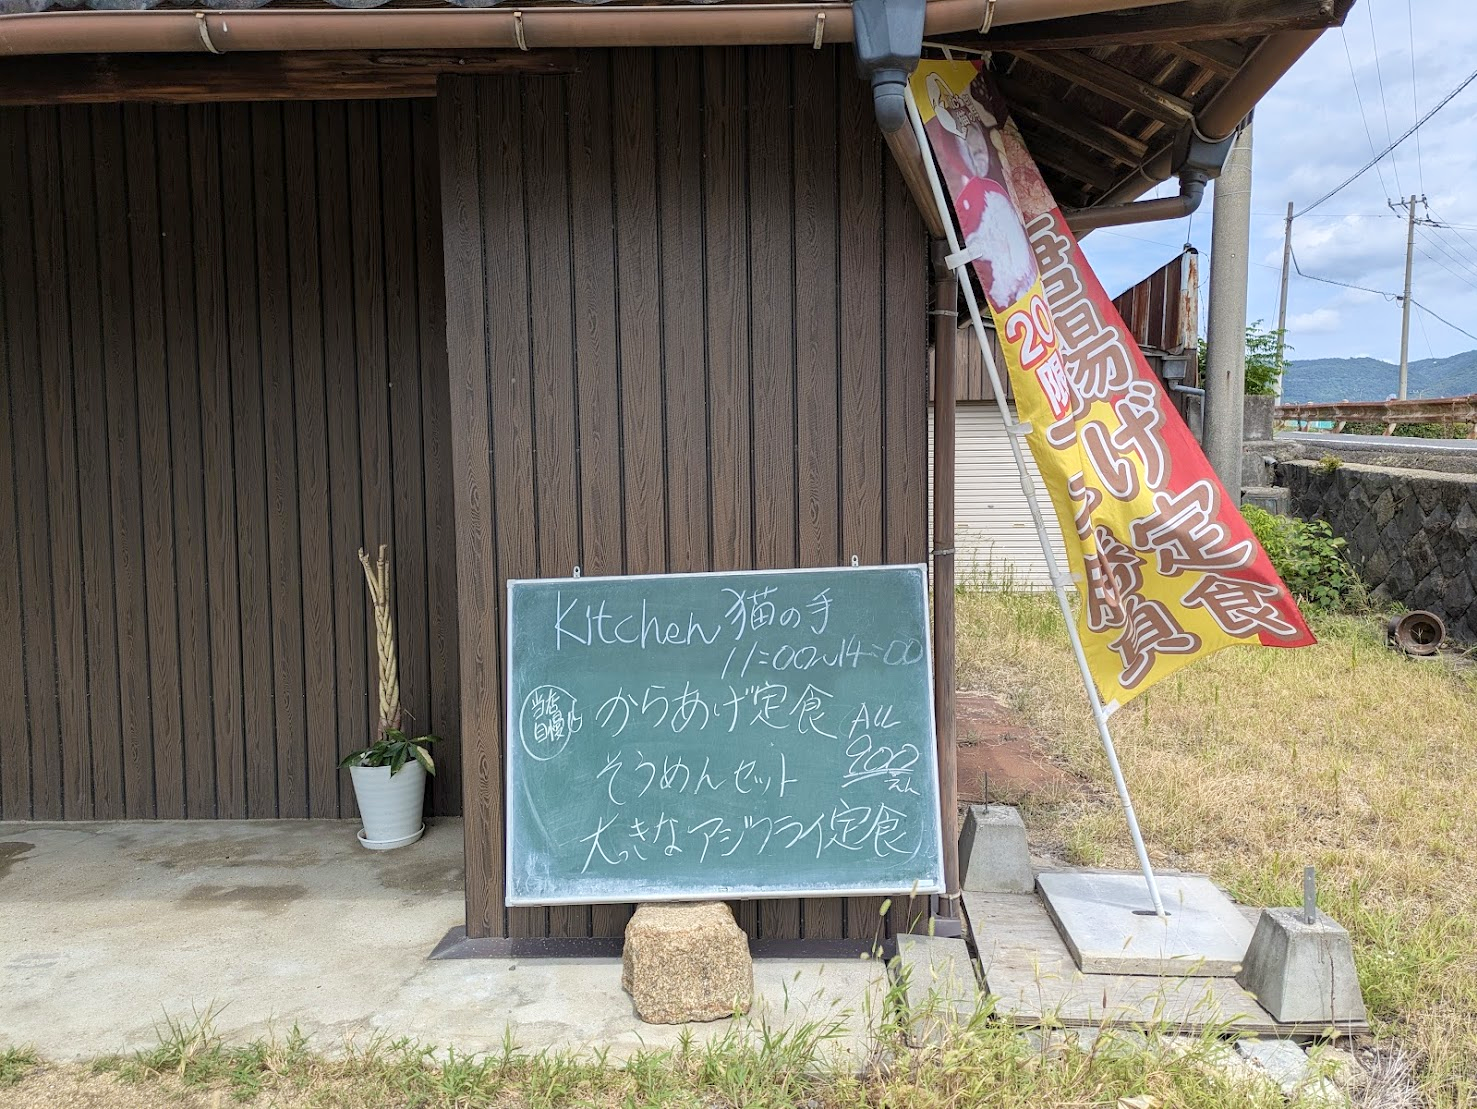 Kitchen 猫の手
11:00〜14:00
当店
自慢
からあげ定食
そうめんセット
大っきなアジフライ定食
ALL
900
えん
唐揚げ定食
20
限定
勝負